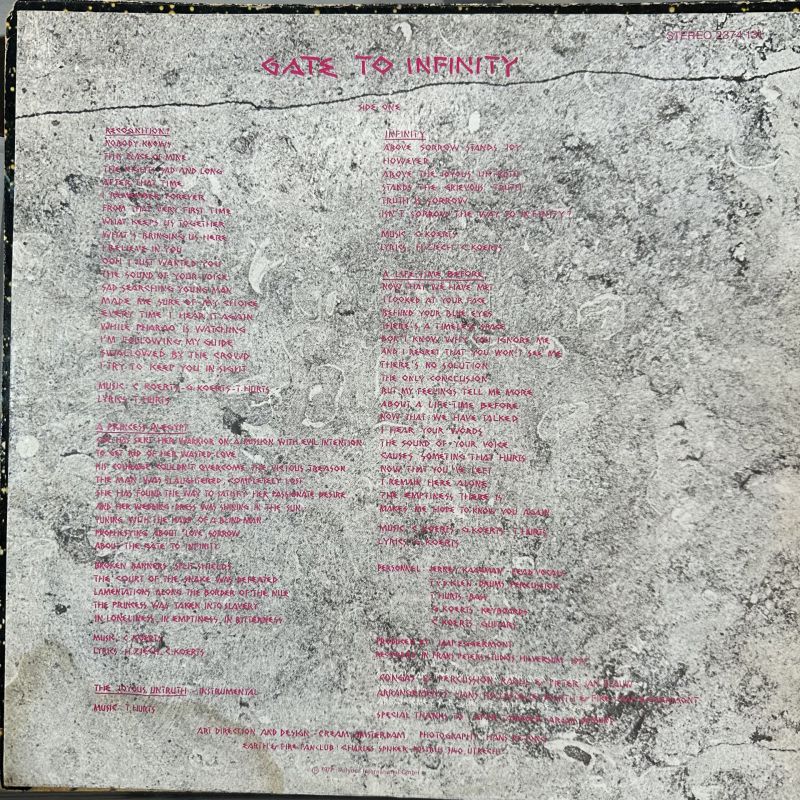 STEREO 2374 131
GATE TO INFINITY
SIDE ONE
RECOGNITION?
NOBODY KNOWS
THIS PLACE OF MINE
THE NIGHTS SAD AND LONG
AFTER THAT TIME
I REMEMBER FOREVER
FROM THAT VERY FIRST TIME
WHAT KEEPS US TOGETHER
WHAT'S BRINGING US HERE
I BELIEVE IN YOU
OOH I JUST WANTED YOU
THE SOUND OF YOUR VOICE
SAD SEARCHING YOUNG MAN
MADE ME SURE OF MY CHOICE
EVERY TIME I HEAR IT AGAIN
WHILE PHARAO IS WATCHING
I'M FOLLOWING MY GUIDE
SWALLOWED BY THE CROWD
I TRY TO KEEP YOU IN SIGHT
MUSIC - C. KOERTS - G. KOERTS - T. HURTS
LYRICS - T. HURTS
A PRINCESS IN EGYPT
SHE HAS SENT HER WARRIOR ON A MISSION WITH EVIL INTENTION
TO GET RID OF HER WASTED LOVE
HIS COURAGE COULDN'T OVERCOME THE VICIOUS TREASON
THE MAN WAS SLAUGHTERED, COMPLETELY LOST
SHE HAS FOUND THE WAY TO SATISFY HER PASSIONATE DESIRE
AND HER WEDDING-DRESS WAS SHINING IN THE SUN
TUNING WITH THE HARP OF A BLIND MAN
PROPHESYING ABOUT LOVE, SORROW
ABOUT THE GATE TO INFINITY
BROKEN BANNERS, SPLIT SHIELDS
THE COURT OF THE SNAKE WAS DEFEATED
LAMENTATIONS ALONG THE BORDER OF THE NILE
THE PRINCESS WAS TAKEN INTO SLAVERY
IN LONELINESS, IN EMPTINESS, IN BITTERNESS
MUSIC - C. KOERTS
LYRICS - H. ZIECH, C. KOERTS
THE JOYOUS UNTRUTH - INSTRUMENTAL
MUSIC - T. HURTS
INFINITY
ABOVE SORROW STANDS JOY
HOWEVER
ABOVE THE JOYOUS UNTRUTH
STANDS THE GRIEVOUS TRUTH
TRUTH IS SORROW
ISN'T SORROW THE WAY TO INFINITY?
MUSIC - G. KOERTS
LYRICS - H. ZIECH, C. KOERTS
A LIFE-TIME BEFORE
NOW THAT WE HAVE MET
I LOOKED AT YOUR FACE
BEHIND YOUR BLUE EYES
THERE'S A TIMELESS SPACE
DON'T KNOW WHY YOU IGNORE ME
AND I REGRET THAT YOU WON'T SEE ME
THERE'S NO SOLUTION
THE ONLY CONCLUSION
BUT MY FEELINGS TELL ME MORE
ABOUT A LIFE-TIME BEFORE
NOW THAT WE HAVE TALKED
I HEAR YOUR WORDS
THE SOUND OF YOUR VOICE
CAUSES SOMETING THAT HURTS
NOW THAT YOU'VE LEFT
I REMAIN HERE ALONE
THE EMPTINESS THERE IS
MAKES ME HOPE TO KNOW YOU AGAIN
MUSIC - C. KOERTS - G. KOERTS - T. HURTS
LYRICS - G. KOERTS
PERSONNEL - JERNEY KAAGMAN - LEAD VOCAL
TON V.D. KLEY - DRUMS PERCUSSION
T. HURTS - BASS
G. KOERTS - KEYBOARDS
C. KOERTS - GUITARS
PRODUCED BY JAAP EGGERMONT
RECORDED IN FRANS PETERS STUDIOS HILVERSUM
CONGAS & PERCUSSION
SPECIAL THANKS TO
ART DIRECTION AND DESIGN - CREAM AMSTERDAM PHOTOGRAPHY
EARTH & FIRE FANCLUB - CHARLES SPIJKER - POSTBUS UTRECHT
Ⓟ 1977 Polydor International GmbH